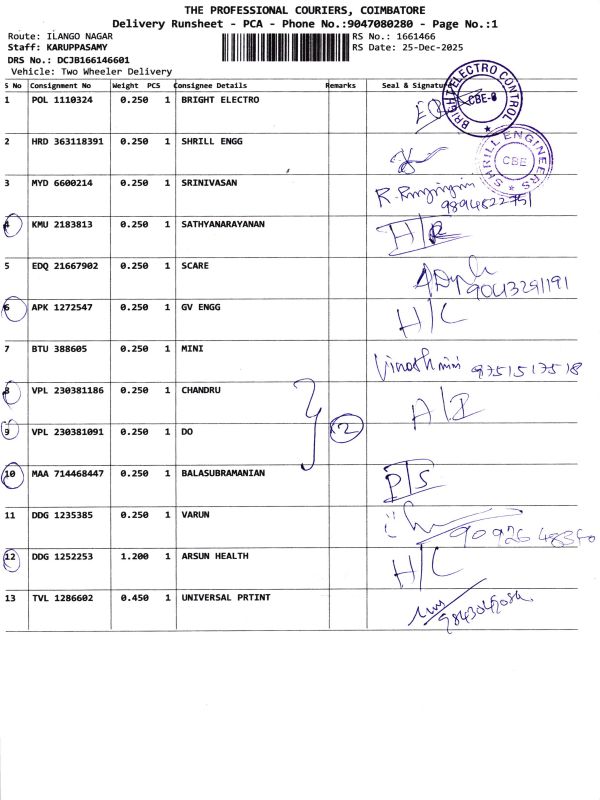 THE PROFESSIONAL COURIERS, COIMBATORE
Delivery Runsheet - PCA - Phone No.:9047080280 - Page No.:1
Route: ILANGO NAGAR
RS No.: 1661466
Staff: KARUPPASAMY
RS Date: 25-Dec-2025
DRS No.: DCJB166146601
Vehicle: Two Wheeler Delivery
S No Consignment No Weight PCS Consignee Details Remarks Seal & Signature
1 POL 1110324 0.250 1 BRIGHT ELECTRO
BRIGHT ELECTRO CONTROL
2 HRD 363118391 0.250 1 SHRILL ENGG
SHRILL ENGINEERS CBE
3 MYD 6600214 0.250 1 SRINIVASAN
9894822751
4 KMU 2183813 0.250 1 SATHYANARAYANAN
5 EDQ 21667902 0.250 1 SCARE
9043291191
6 APK 1272547 0.250 1 GV ENGG H/C
7 BTU 388605 0.250 1 MINI 9751517518
8 VPL 230381186 0.250 1 CHANDRU
9 VPL 230381091 0.250 1 DO 2
10 MAA 714468447 0.250 1 BALASUBRAMANIAN P/S
11 DDG 1235385 0.250 1 VARUN
12 DDG 1252253 1.200 1 ARSUN HEALTH H/C
13 TVL 1286602 0.450 1 UNIVERSAL PRTINT